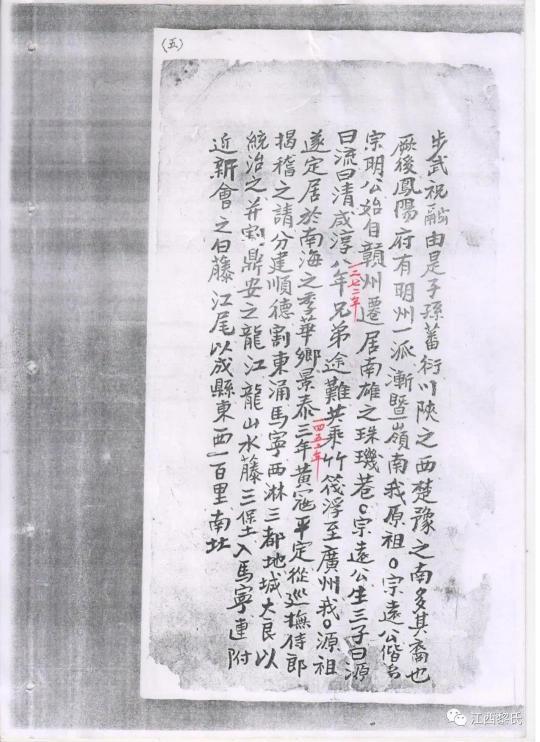 （五）
步武祝融由是子孫蕃衍川陝之西楚豫之南多其裔也
厥後鳳陽府有明州一派漸暨嶺南我原祖。宗遠公偕
宗明公始自贛州遷居南雄之珠璣巷。宗遠公生三子曰源
曰流曰清咸淳八年兄弟途難共乘竹筏浮至廣州我。源祖
一二七二年
遂定居於南海之華鄉景泰三年黃寇平定從巡撫侍郎
一四五二年
揭稽之請分建順德割東涌馬寧西淋三都地城大良以
統治之并割鼎安之龍江龍山水藤三堡入馬寧連附
近新會之白藤江尾以成縣東西一百里南北
江西黎氏